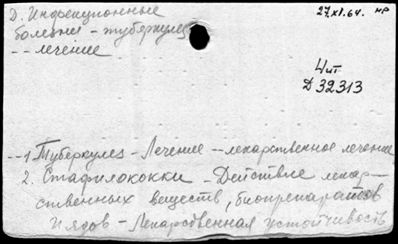 Д. Инфекционные
27.XI.64. нр
болезни - туберкулез
-- лечение
4 ит
Д 32313
--1. Туберкулез - Лечение -- лекарственное лечение
2. Стафилококки - Действие лекар-
ственных веществ, биопрепаратов
и ядов - Лекарственная устойчивость